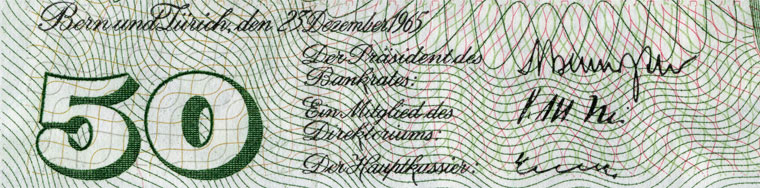 Bern und Zürich, den 23. Dezember 1965
Der Präsident des
Bankrates:
Ein Mitglied des
Direktoriums:
Der Hauptkassier:
50